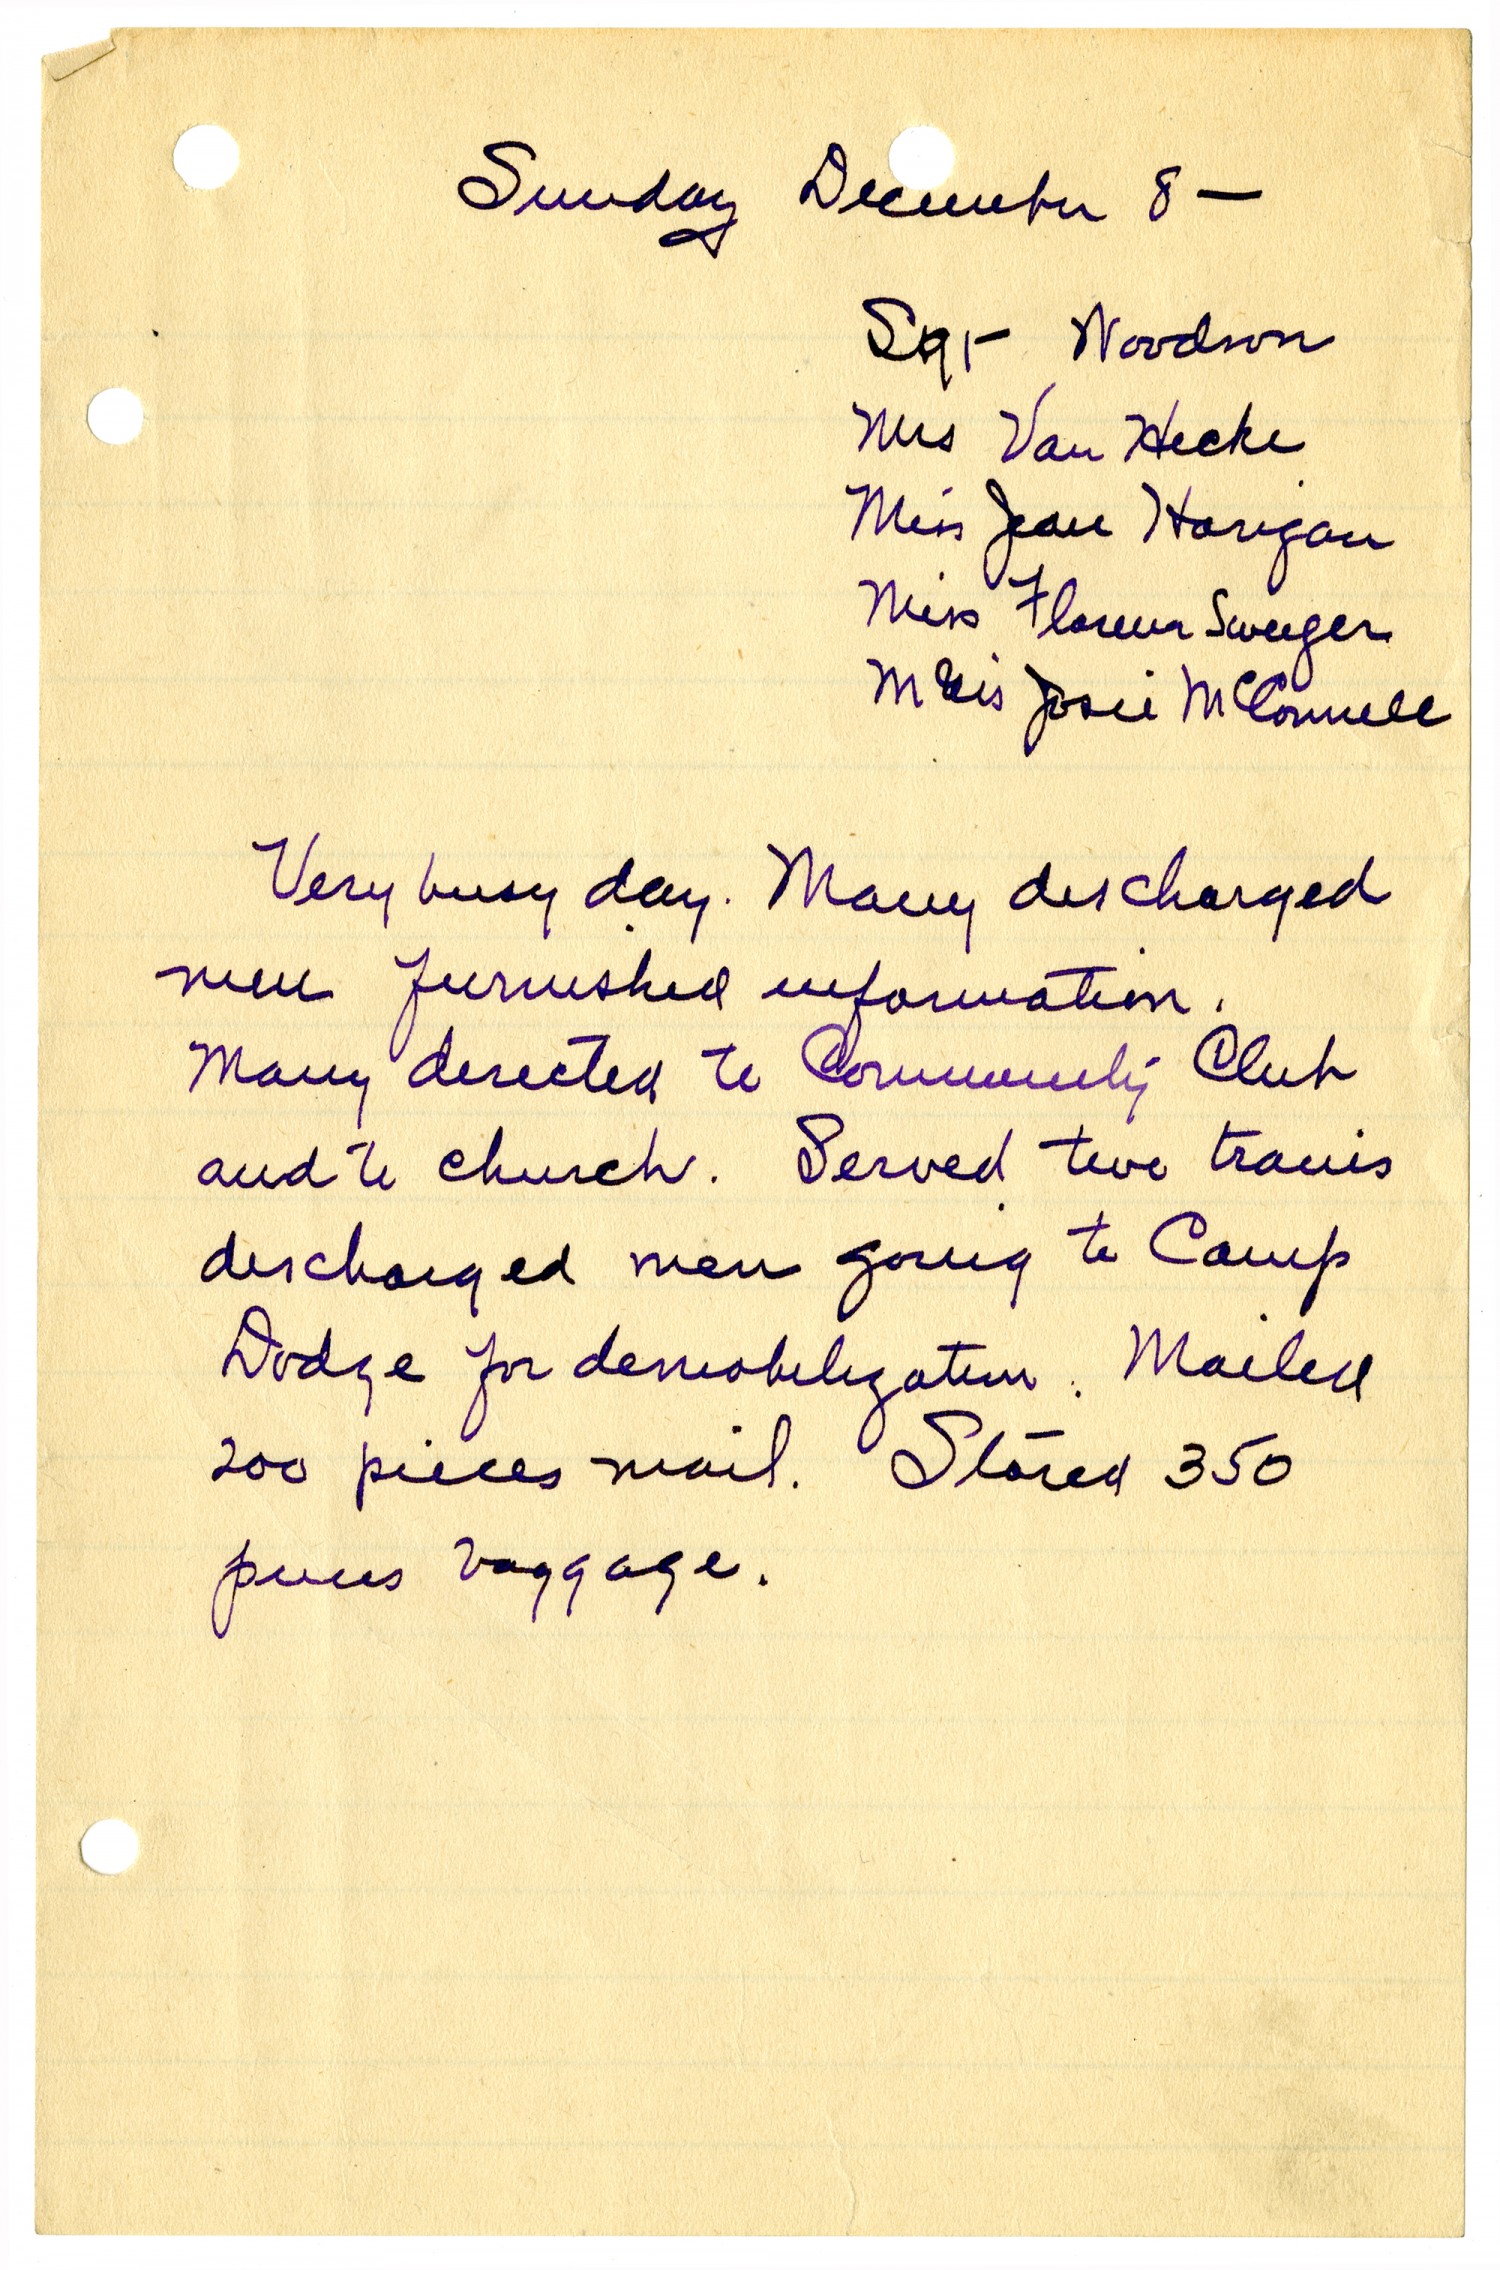 Sunday December 8 —
Sgt Woodson
Mrs Van Hecke
Miss Jean Harigan
Miss Florence Sweeger
Miss Josie McConnell
Very busy day. Many discharged
men furnished information.
Many directed to Community Club
and to church. Served two trains
discharged men going to Camp
Dodge for demobilization. Mailed
200 pieces mail. Stored 350
pieces baggage.